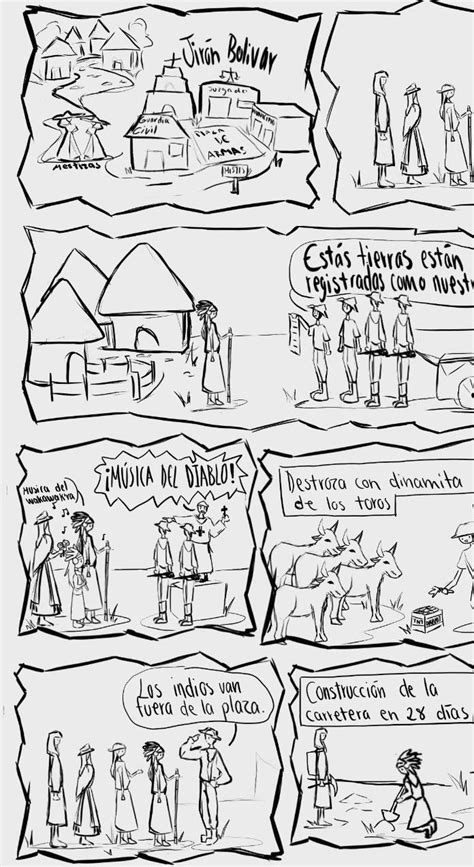 Jirón Bolivar
Juzgado
Guardia
Civil
PLAZA
DE
ARMAS
MISTIS
Mestizas
Estás tierras están
registradas como nuestr
Musica del
wakawakra
¡MÚSICA DEL DIABLO!
Destroza con dinamita
de los toros
TNT
Los indios van
fuera de la plaza.
Construcción de la
carretera en 28 días